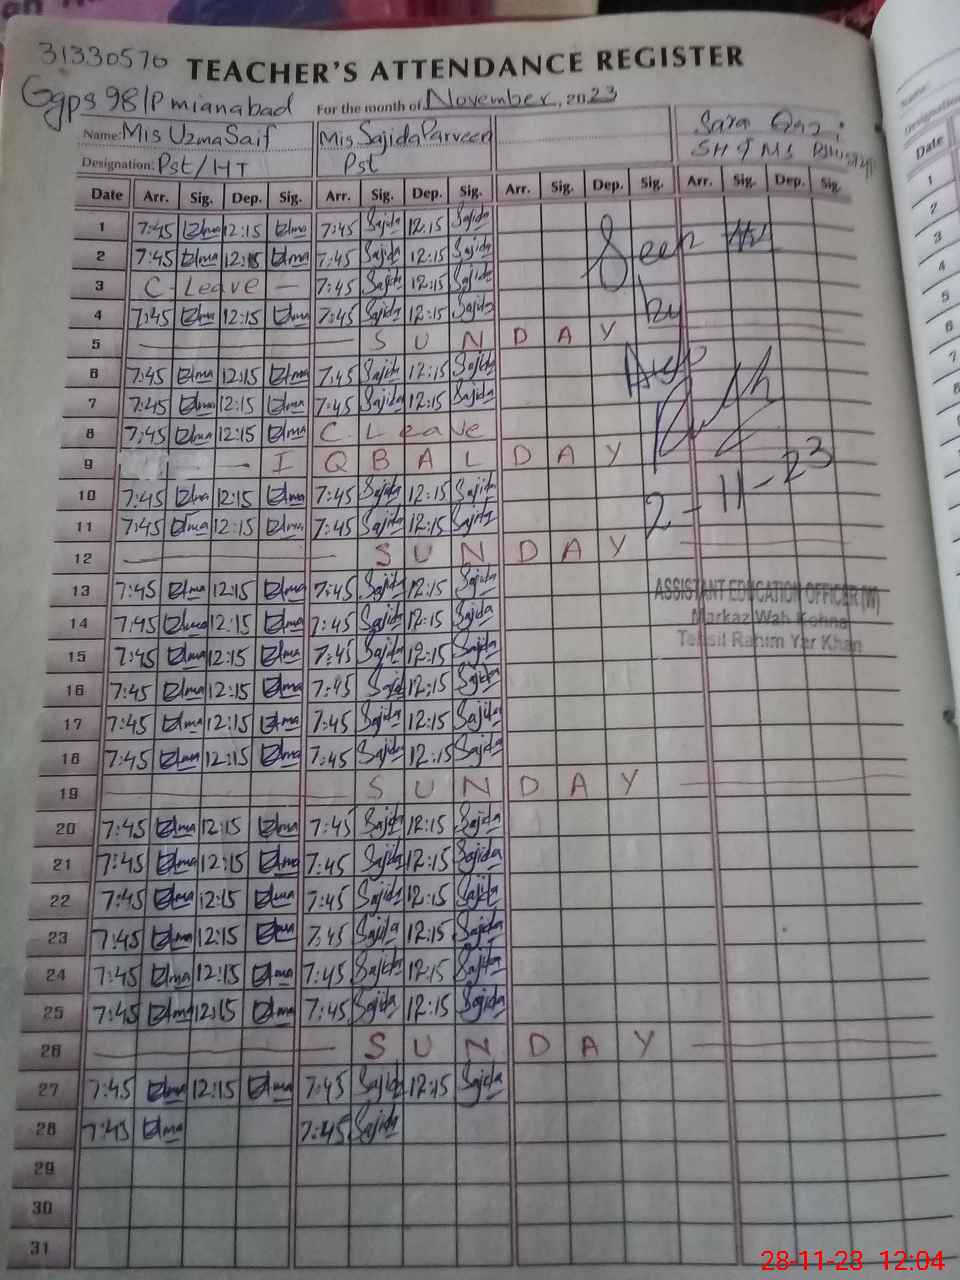 31330570
TEACHER'S ATTENDANCE REGISTER
Ggps 98/P mianabad For the month of November, 2023
Name: Mis Uzma Saif Mis Sajida Parveen Sara
Designation: Pst/HT Pst
Date Arr. Sig. Dep. Sig. Arr. Sig. Dep. Sig. Arr. Sig. Dep. Sig. Arr. Sig. Dep. Sig.
1 7:45 Uzma 12:15 Uzma 7:45 Sajida 12:15 Sajida
2 7:45 Uzma 12:15 Uzma 7:45 Sajida 12:15 Sajida Seen
3 C-Leave — 7:45 Sajida 12:15 Sajida
4 7:45 Uzma 12:15 Uzma 7:45 Sajida 12:15 Sajida by
5 SUNDAY
6 7:45 Uzma 12:15 Uzma 7:45 Sajida 12:15 Sajida
7 7:45 Uzma 12:15 Uzma 7:45 Sajida 12:15 Sajida
8 7:45 Uzma 12:15 Uzma C. Leave
9 IQBAL DAY
10 7:45 Uzma 12:15 Uzma 7:45 Sajida 12:15 Sajida 2-11-23
11 7:45 Uzma 12:15 Uzma 7:45 Sajida 12:15 Sajida
12 SUNDAY
13 7:45 Uzma 12:15 Uzma 7:45 Sajida 12:15 Sajida ASSISTANT EDUCATION OFFICER (W)
14 7:45 Uzma 12:15 Uzma 7:45 Sajida 12:15 Sajida Markaz Wah Kohna
15 7:45 Uzma 12:15 Uzma 7:45 Sajida 12:15 Sajida Tehsil Rahim Yar Khan
16 7:45 Uzma 12:15 Uzma 7:45 Sajida 12:15 Sajida
17 7:45 Uzma 12:15 Uzma 7:45 Sajida 12:15 Sajida
18 7:45 Uzma 12:15 Uzma 7:45 Sajida 12:15 Sajida
19 SUNDAY
20 7:45 Uzma 12:15 Uzma 7:45 Sajida 12:15 Sajida
21 7:45 Uzma 12:15 Uzma 7:45 Sajida 12:15 Sajida
22 7:45 Uzma 12:15 Uzma 7:45 Sajida 12:15 Sajida
23 7:45 Uzma 12:15 Uzma 7:45 Sajida 12:15 Sajida
24 7:45 Uzma 12:15 Uzma 7:45 Sajida 12:15 Sajida
25 7:45 Uzma 12:15 Uzma 7:45 Sajida 12:15 Sajida
26 SUNDAY
27 7:45 Uzma 12:15 Uzma 7:45 Sajida 12:15 Sajida
28 7:45 Uzma 7:45 Sajida
29
30
31
Name:
Designation
Date
1
2
3
4
5
6
7
8
9
28-11-23 12:04